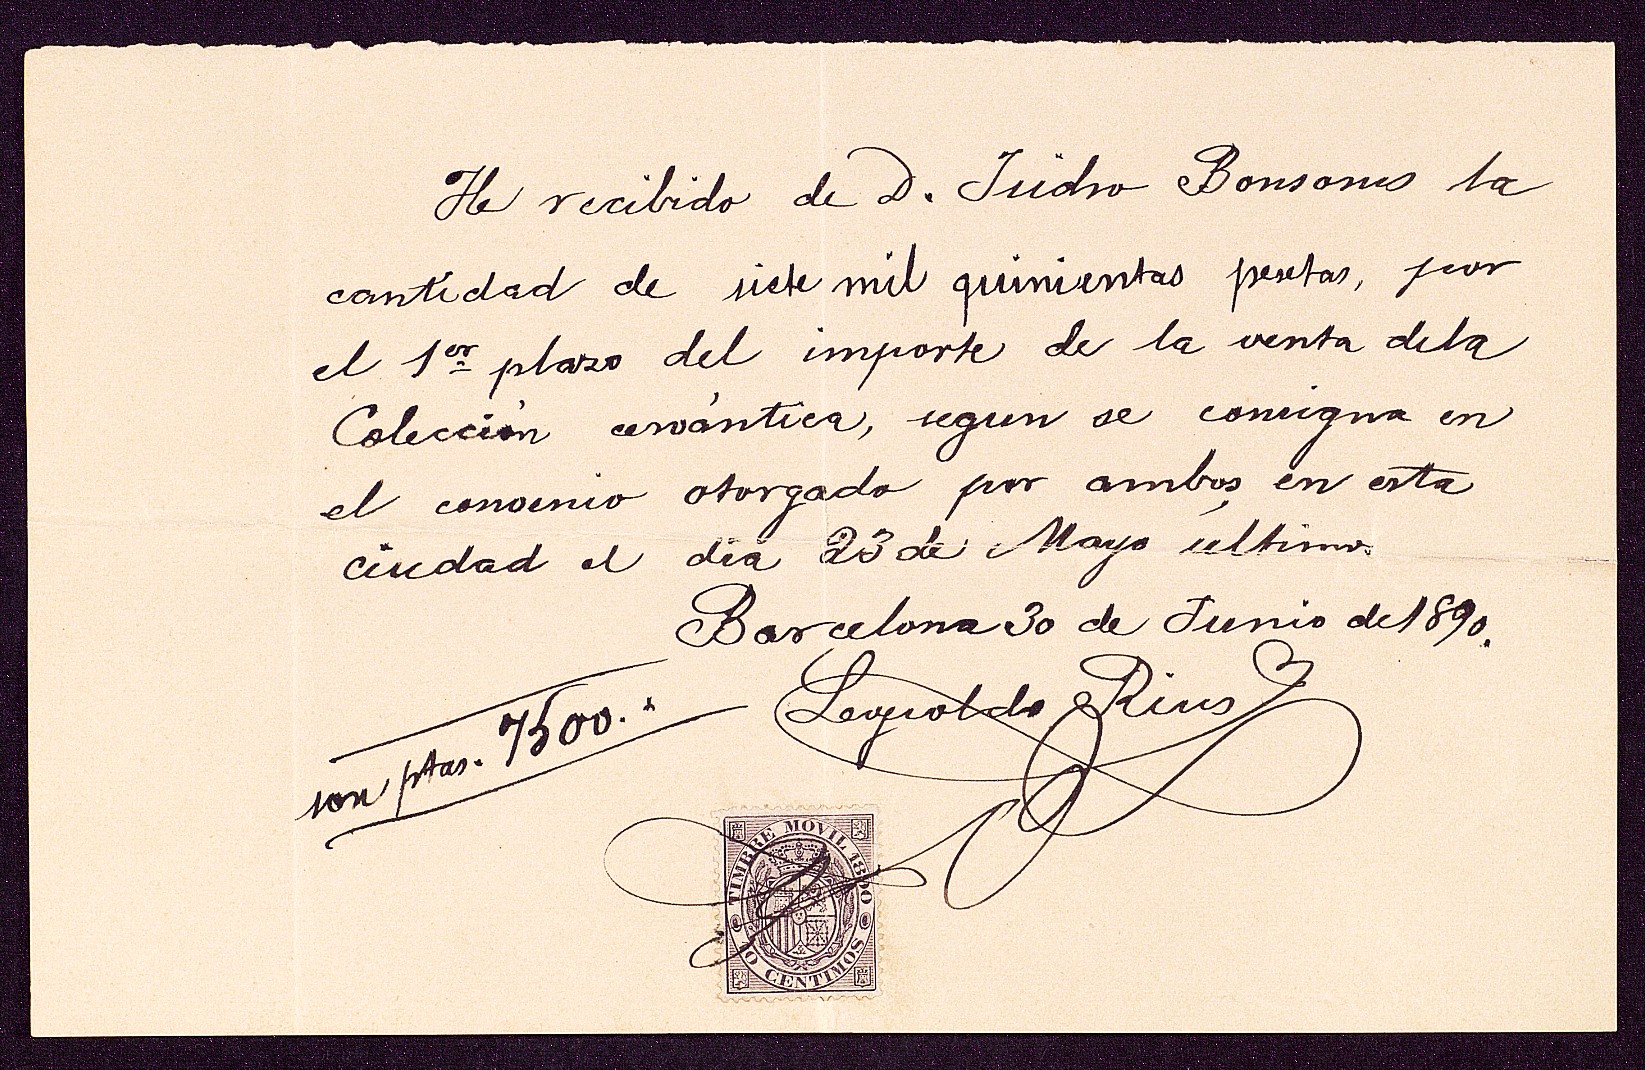 He recibido de D. Isidro Bonsoms la
cantidad de siete mil quinientas pesetas, por
el 1er plazo del importe de la venta dela
Colección cervántica, segun se consigna en
el convenio otorgado por ambos en esta
ciudad el dia 23 de Mayo último.
Barcelona 30 de Junio de 1890.
Leopoldo Rius
son ptas. 7500.
TIMBRE MOVIL 1890
10 CENTIMOS